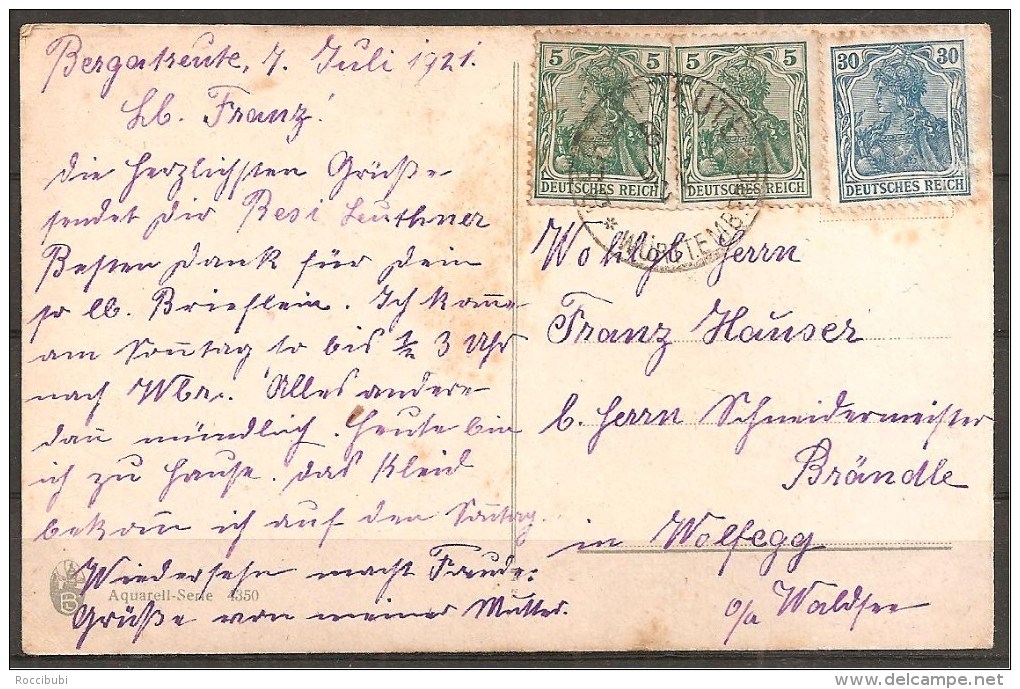 Bergatreute, 7. Juli 1921.
Lb. Franz!
Die herzlichsten Grüße
sendet dir Resi Leuthner
Besten Dank für dein
so lb. Brieflein. Ich kom̅e
am Son̅tag so bis ½ 3 Uhr
nach Alles andere
dan̅ mündlich. Heute bin
ich zu Hause. Das Kleid
bekom̅ ich auf den Son̅tag.
Wiedersehn macht Freude.
Grüße von meiner Mutter.
Aquarell-Serie 4350
5 5 5 5 30 30
DEUTSCHES REICH DEUTSCHES REICH DEUTSCHES REICH
* WÜRTTEMB.
Wohlgb. Herrn
Franz Hauser
b. Herrn Schneidermeister
Brändle
in Wolfegg
o/a Waldsee
Roccibubi
delcampe.net